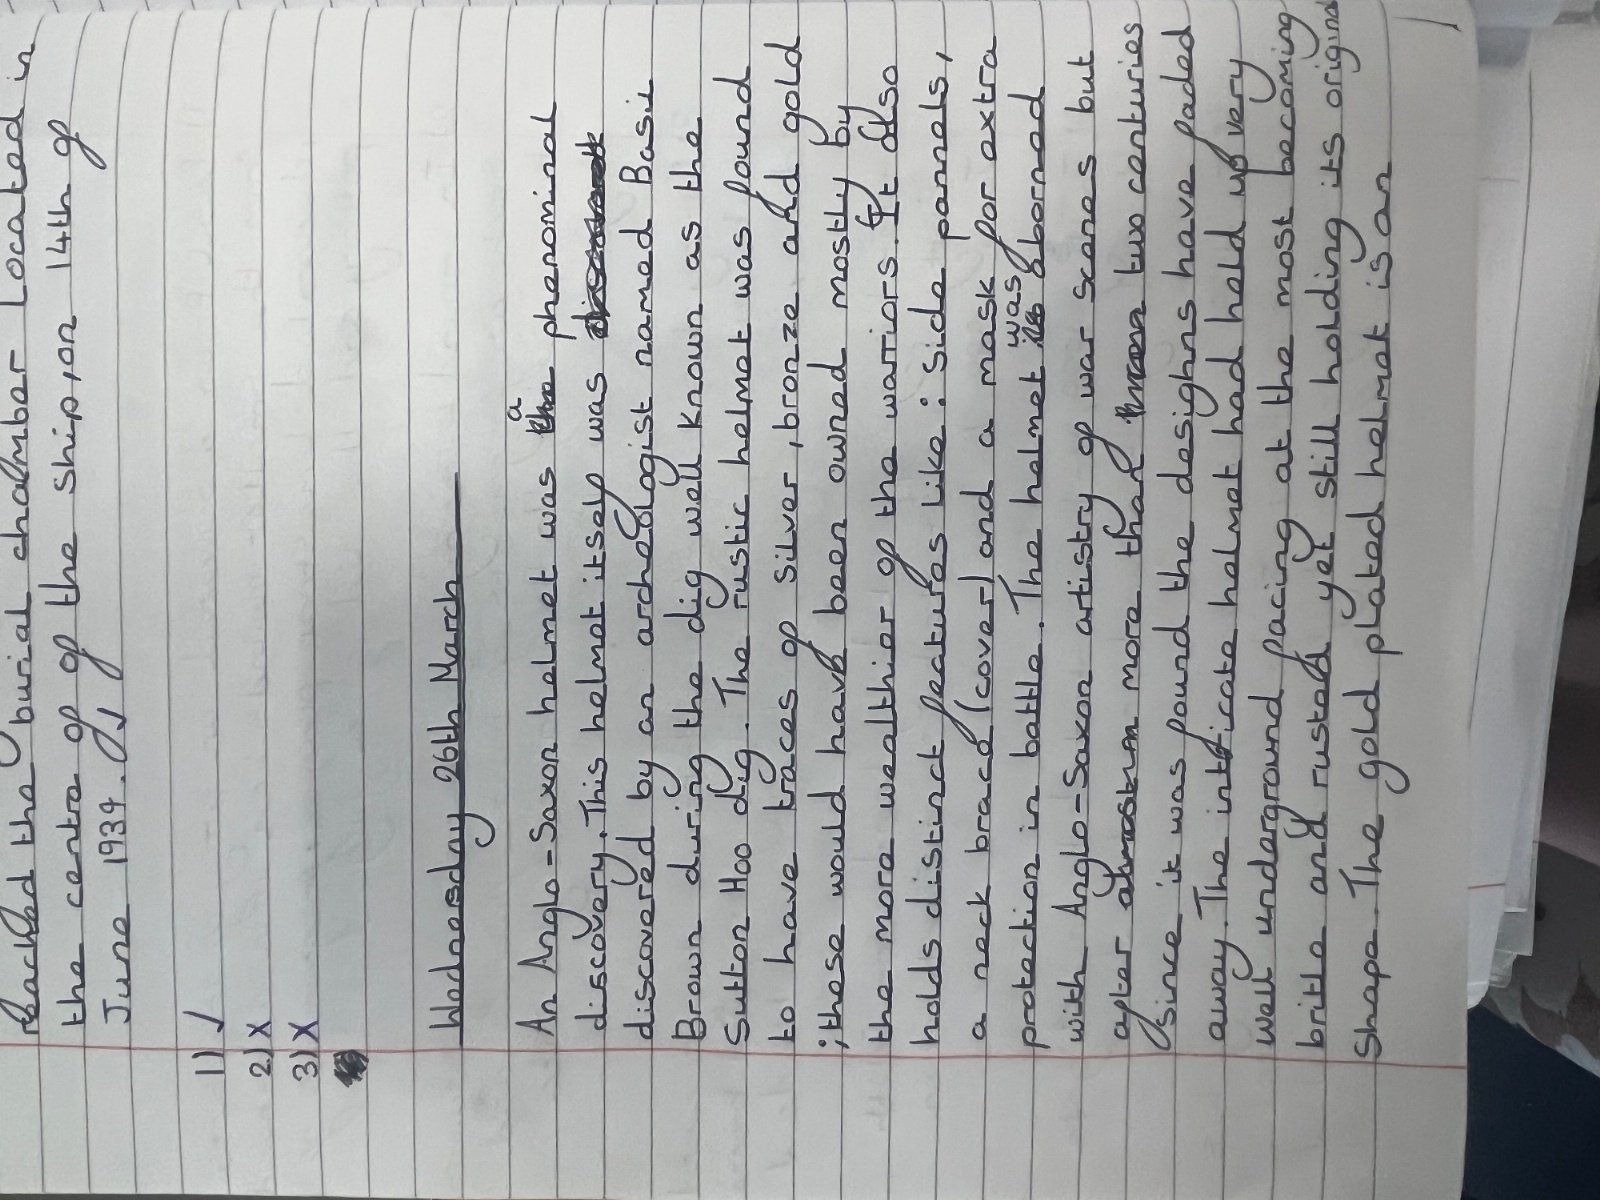 reached the burial chamber located in
the centre of of the ship, on 14th of
June 1939.
1) ✓
2) x
3) x
Wednesday 26th March
An Anglo-Saxon helmet was a phenominal
discovery. This helmet itself was
discovered by an archeologist named Basil
Brown during the dig well known as the
Sutton Hoo dig. The rustic helmet was found
to have traces of silver, bronze and gold
; these would have been owned mostly by
the more wealthier of the warriors. It also
holds distinct features like: side pannels,
a neck brace (cover) and a mask for extra
protection in battle. The helmet was abornad
with Anglo-Saxon artistry of war scenes but
after more than two centuries
since it was found the designs have faded
away. The intricate helmet had held up very
well underground facing at the most becoming
britle and rusted yet still holding its original
shape. The gold plated helmet is an